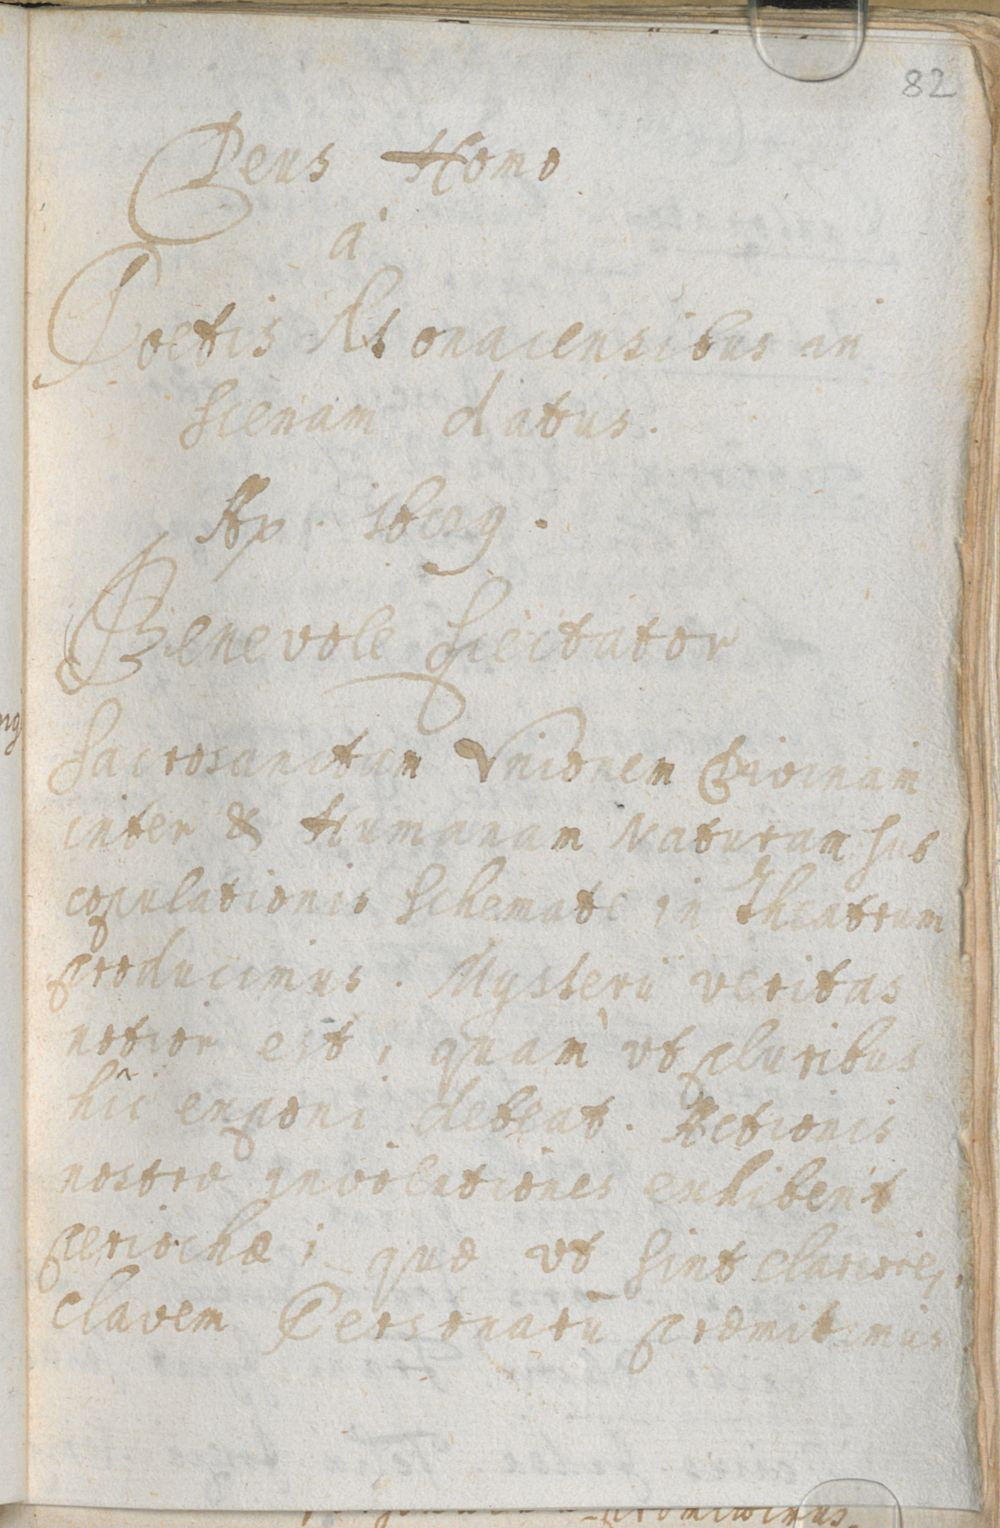 82
Deus Homo
à
Poetis Monacensibus in
scenam datus.
Benevole Spectator
Sacrosanctam Vnionem Divinam
inter & Humanam Naturam sub
copulationis Schemate in theatrum
producimus. Mysterij veritas
notior est, quàm vt pluribus
hîc exponi debeat. Actionis
nostræ involutiones exhibent
periochæ; quæ vt sint clariores,
clavem Personarū præmittimus